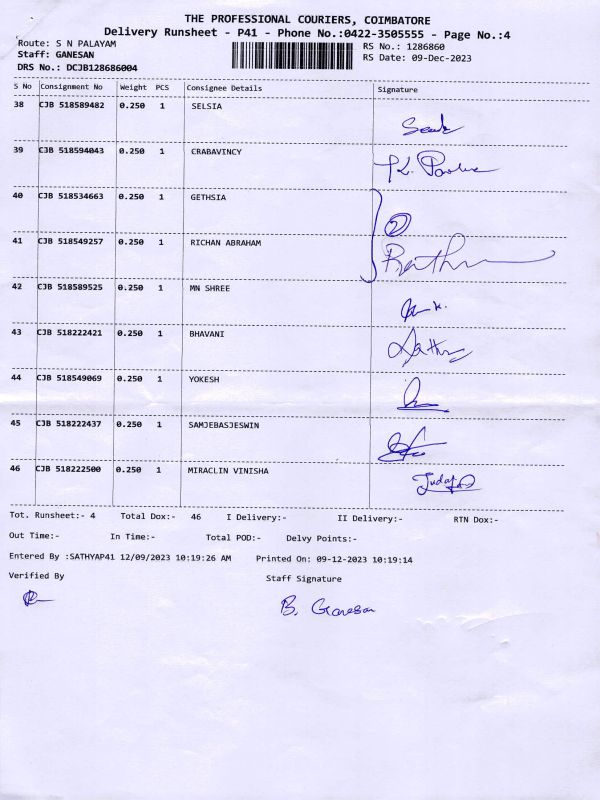 THE PROFESSIONAL COURIERS, COIMBATORE
Delivery Runsheet - P41 - Phone No.:0422-3505555 - Page No.:4
Route: S N PALAYAM RS No.: 1286860
Staff: GANESAN RS Date: 09-Dec-2023
DRS No.: DCJB128686004
S No Consignment No Weight PCS Consignee Details Signature
38 CJB 518589482 0.250 1 SELSIA
39 CJB 518594043 0.250 1 CRABAVINCY
40 CJB 518534663 0.250 1 GETHSIA
2
41 CJB 518549257 0.250 1 RICHAN ABRAHAM
42 CJB 518589525 0.250 1 MN SHREE
43 CJB 518222421 0.250 1 BHAVANI
44 CJB 518549069 0.250 1 YOKESH
45 CJB 518222437 0.250 1 SAMJEBASJESWIN
46 CJB 518222500 0.250 1 MIRACLIN VINISHA
Tot. Runsheet:- 4 Total Dox:- 46 I Delivery:- II Delivery:- RTN Dox:-
Out Time:- In Time:- Total POD:- Delvy Points:-
Entered By :SATHYAP41 12/09/2023 10:19:26 AM Printed On: 09-12-2023 10:19:14
Verified By Staff Signature
B. Ganesan